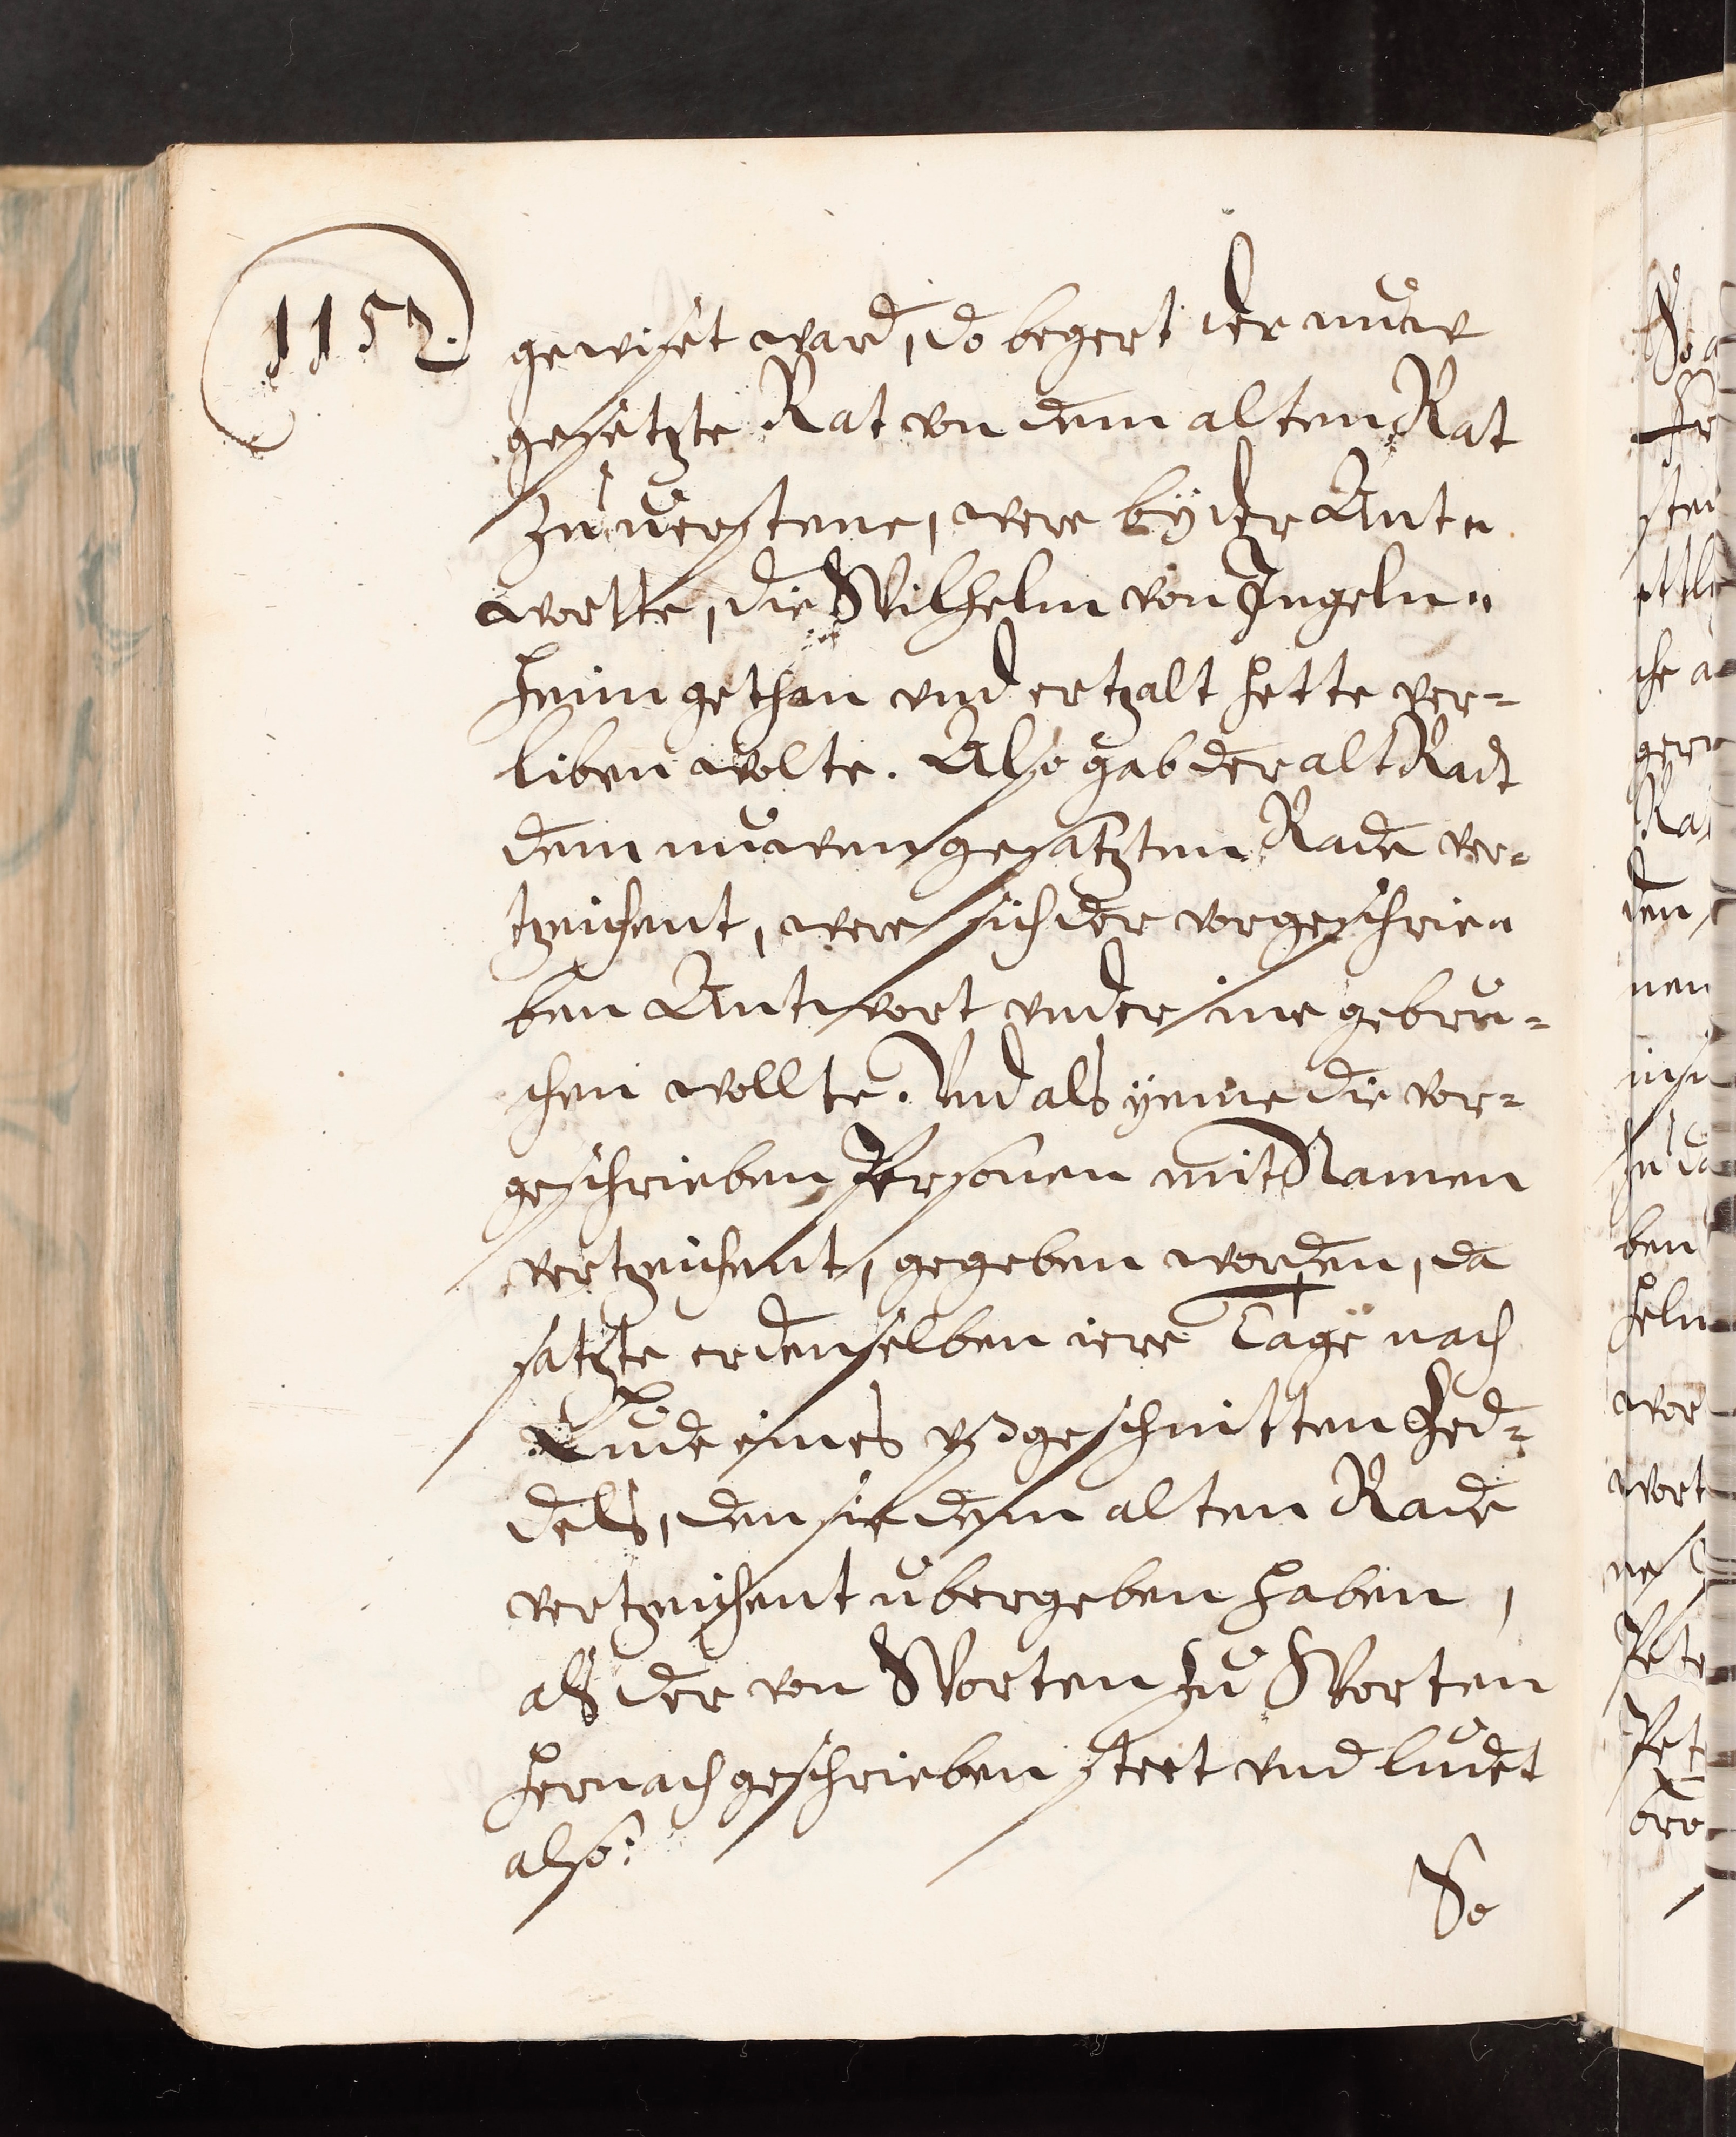 1152.
gewiset ward, do begert der nuw
gesetzte Rat von dem alten Rat
zu versteene, were by der Ant„
wortte, die Wilhelm von Ingeln„
heim gethan und ertzalt hette ver-
liben wolte. Also gab der alt Radt
dem nuwen gesatzten Rade ver-
tzeichent, were sich der vorgeschrie„
ben Antwort under ine gebru-
chen wollte. Vnd als yeme die vor-
geschrieben Personen mit Namen
vertzeichent, gegeben worden, da
satzte er denselben iere Tage nach
Lude eines ußgeschnitten Zed-
dels, den sie dem alten Rade
vertzeichent ubergeben haben,
alß der von Worten zu Worten
hernach geschrieben steet und ludet
also:
So